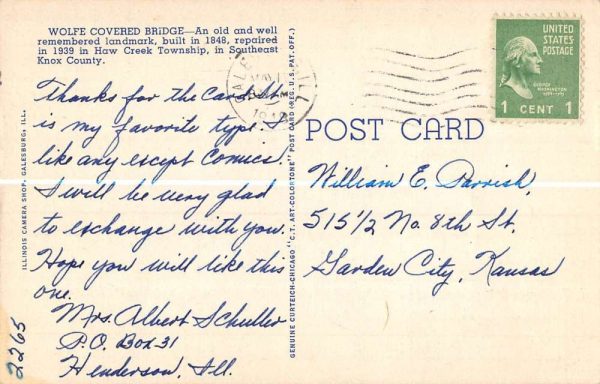 WOLFE COVERED BRIDGE—An old and well
remembered landmark, built in 1848, repaired
in 1939 in Haw Creek Township, in Southeast
Knox County.
UNITED
STATES
POSTAGE
GEORGE
WASHINGTON
1 CENT 1
Thanks for the Card. It
is my favorite type.
like any except Comics.
I will be very glad
to exchange with you.
Hope you will like this
one.
Mrs. Albert Schuller
P.O. Box 31
Henderson, Ill.
2265
ILLINOIS CAMERA SHOP, GALESBURG, ILL.
GENUINE CURTEICH-CHICAGO "C.T. ART-COLORTONE" POST CARD (REG. U.S. PAT. OFF.)
POST CARD
William E. Parrish,
515½ No. 8th St.
Garden City, Kansas